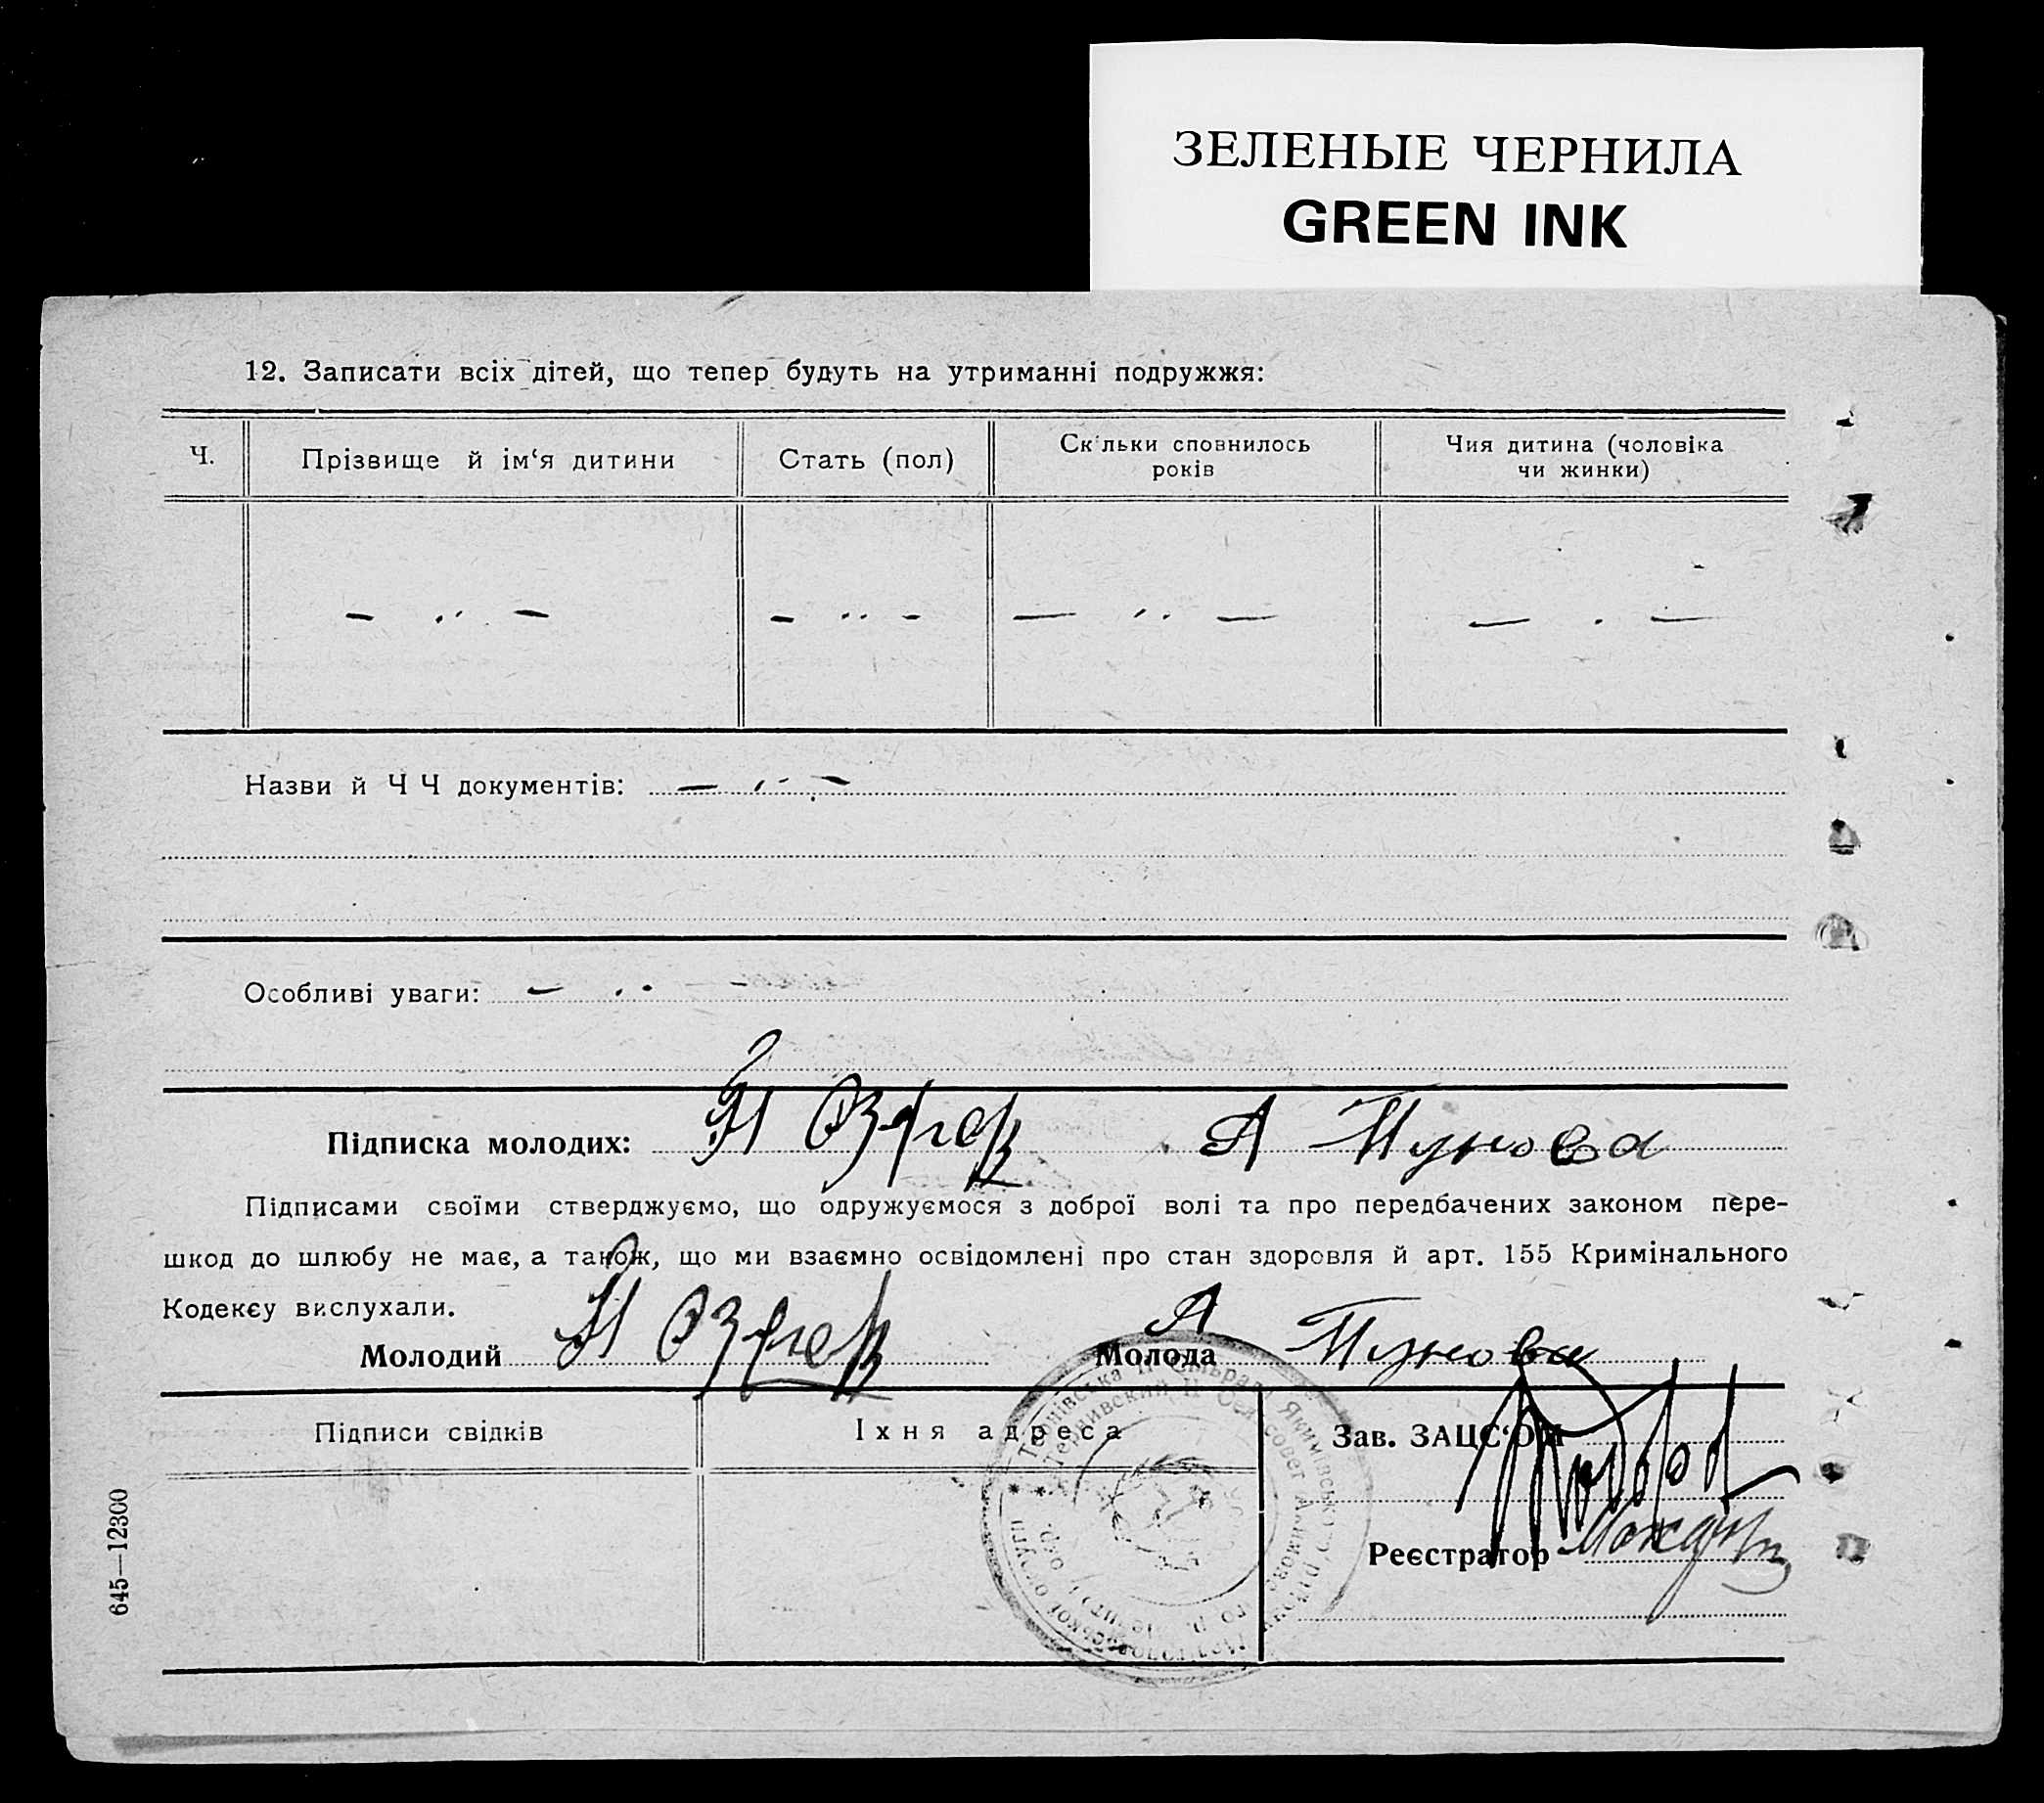 ЗЕЛЕНЫЕ ЧЕРНИЛА
GREEN INK
12. Записати всіх дітей, що тепер будуть на утриманні подружжя:
Ч.
Прізвище й ім‘я дитини
Стать (пол)
Скільки сповнилось
років
Чия дитина (чоловіка
чи жинки)
— ·· —
— ·· —
— ·· —
— · —
Назви й Ч Ч документів: — ·· —
Особливі уваги: — ·· —
Підписка молодих: А Тунова
Підписами своїми стверджуємо, що одружуємося з доброї волі та про передбачених законом пере-
шкод до шлюбу не має, а також, що ми взаємно освідомлені про стан здоровля й арт. 155 Кримінального
Кодексу вислухали.
Молодий
Молода А Тунова
Підписи свідків
Їхня адреса
Зав. ЗАЦС‘ОМ
Реєстратор
645—12300